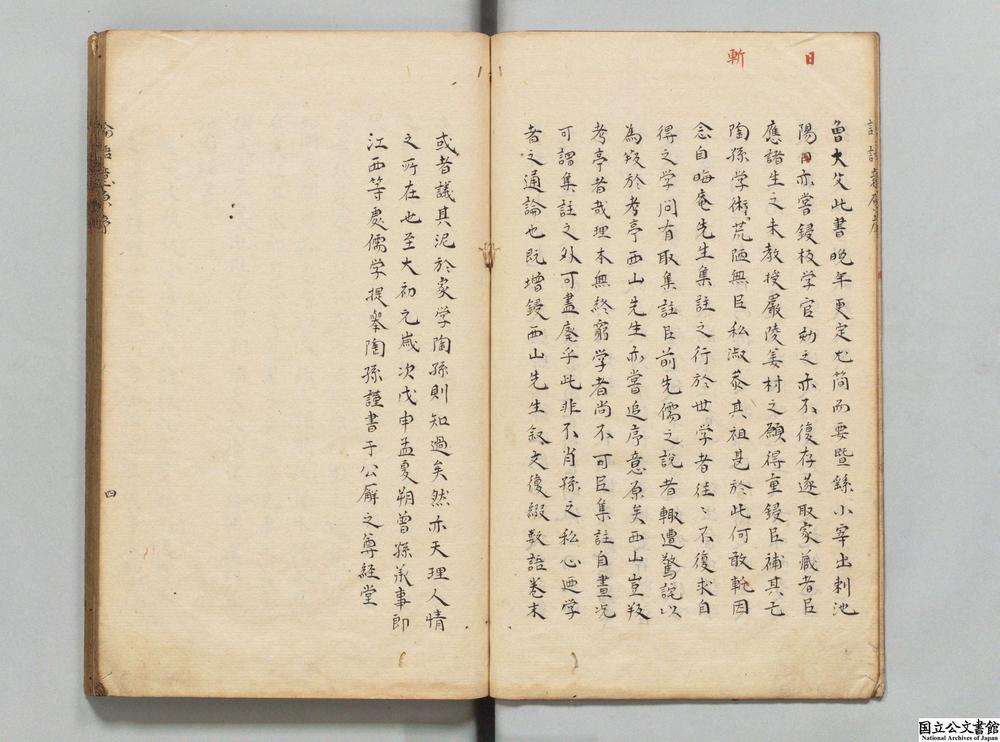 日
斬
魯大父此書晚年更定尤简而要暨繇小宰出刺池
陽日亦嘗鋟板学官勐之亦不復存遂取家藏者㠯
應諸生之未教授嚴陵姜材之願得重鋟㠯補其亡
陶孫学術荒陋無㠯私淑忝其祖是於此何敢斬因
念自晦庵先生集註之行於世学者徃〻不復求自
得之学問有取集註㠯前先儒之說者輙遭驚詫以
為㧞於考亭西山先生亦嘗追序意原矣西山豈㧞
考亭者㢤理本無終窮学者尚不可㠯集註自畫况
可謂集註之外可盡廢乎此非不肖孫之私心迺学
者之通論也既增鋟西山先生叙文復綴数語卷末
或者議其泥於家学陶孫則知過矣然亦天理人情
之所在也至大初元歲次戊申孟夏朔曾孫承事郎
江西等處儒学提舉陶孫謹書于公廨之尊經堂
四
国立公文書館
National Archives of Japan